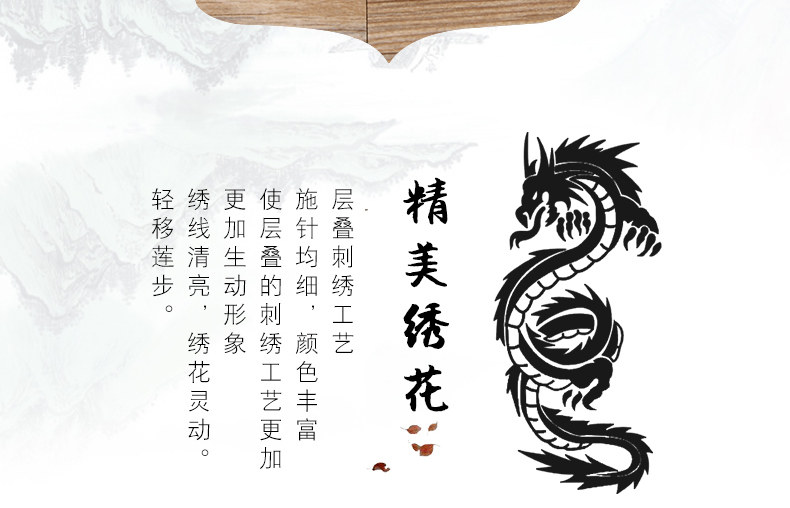 精美绣花
层叠刺绣工艺
施针均细，颜色丰富
使层叠的刺绣工艺更加
更加生动形象
绣线清亮，绣花灵动。
轻移莲步。